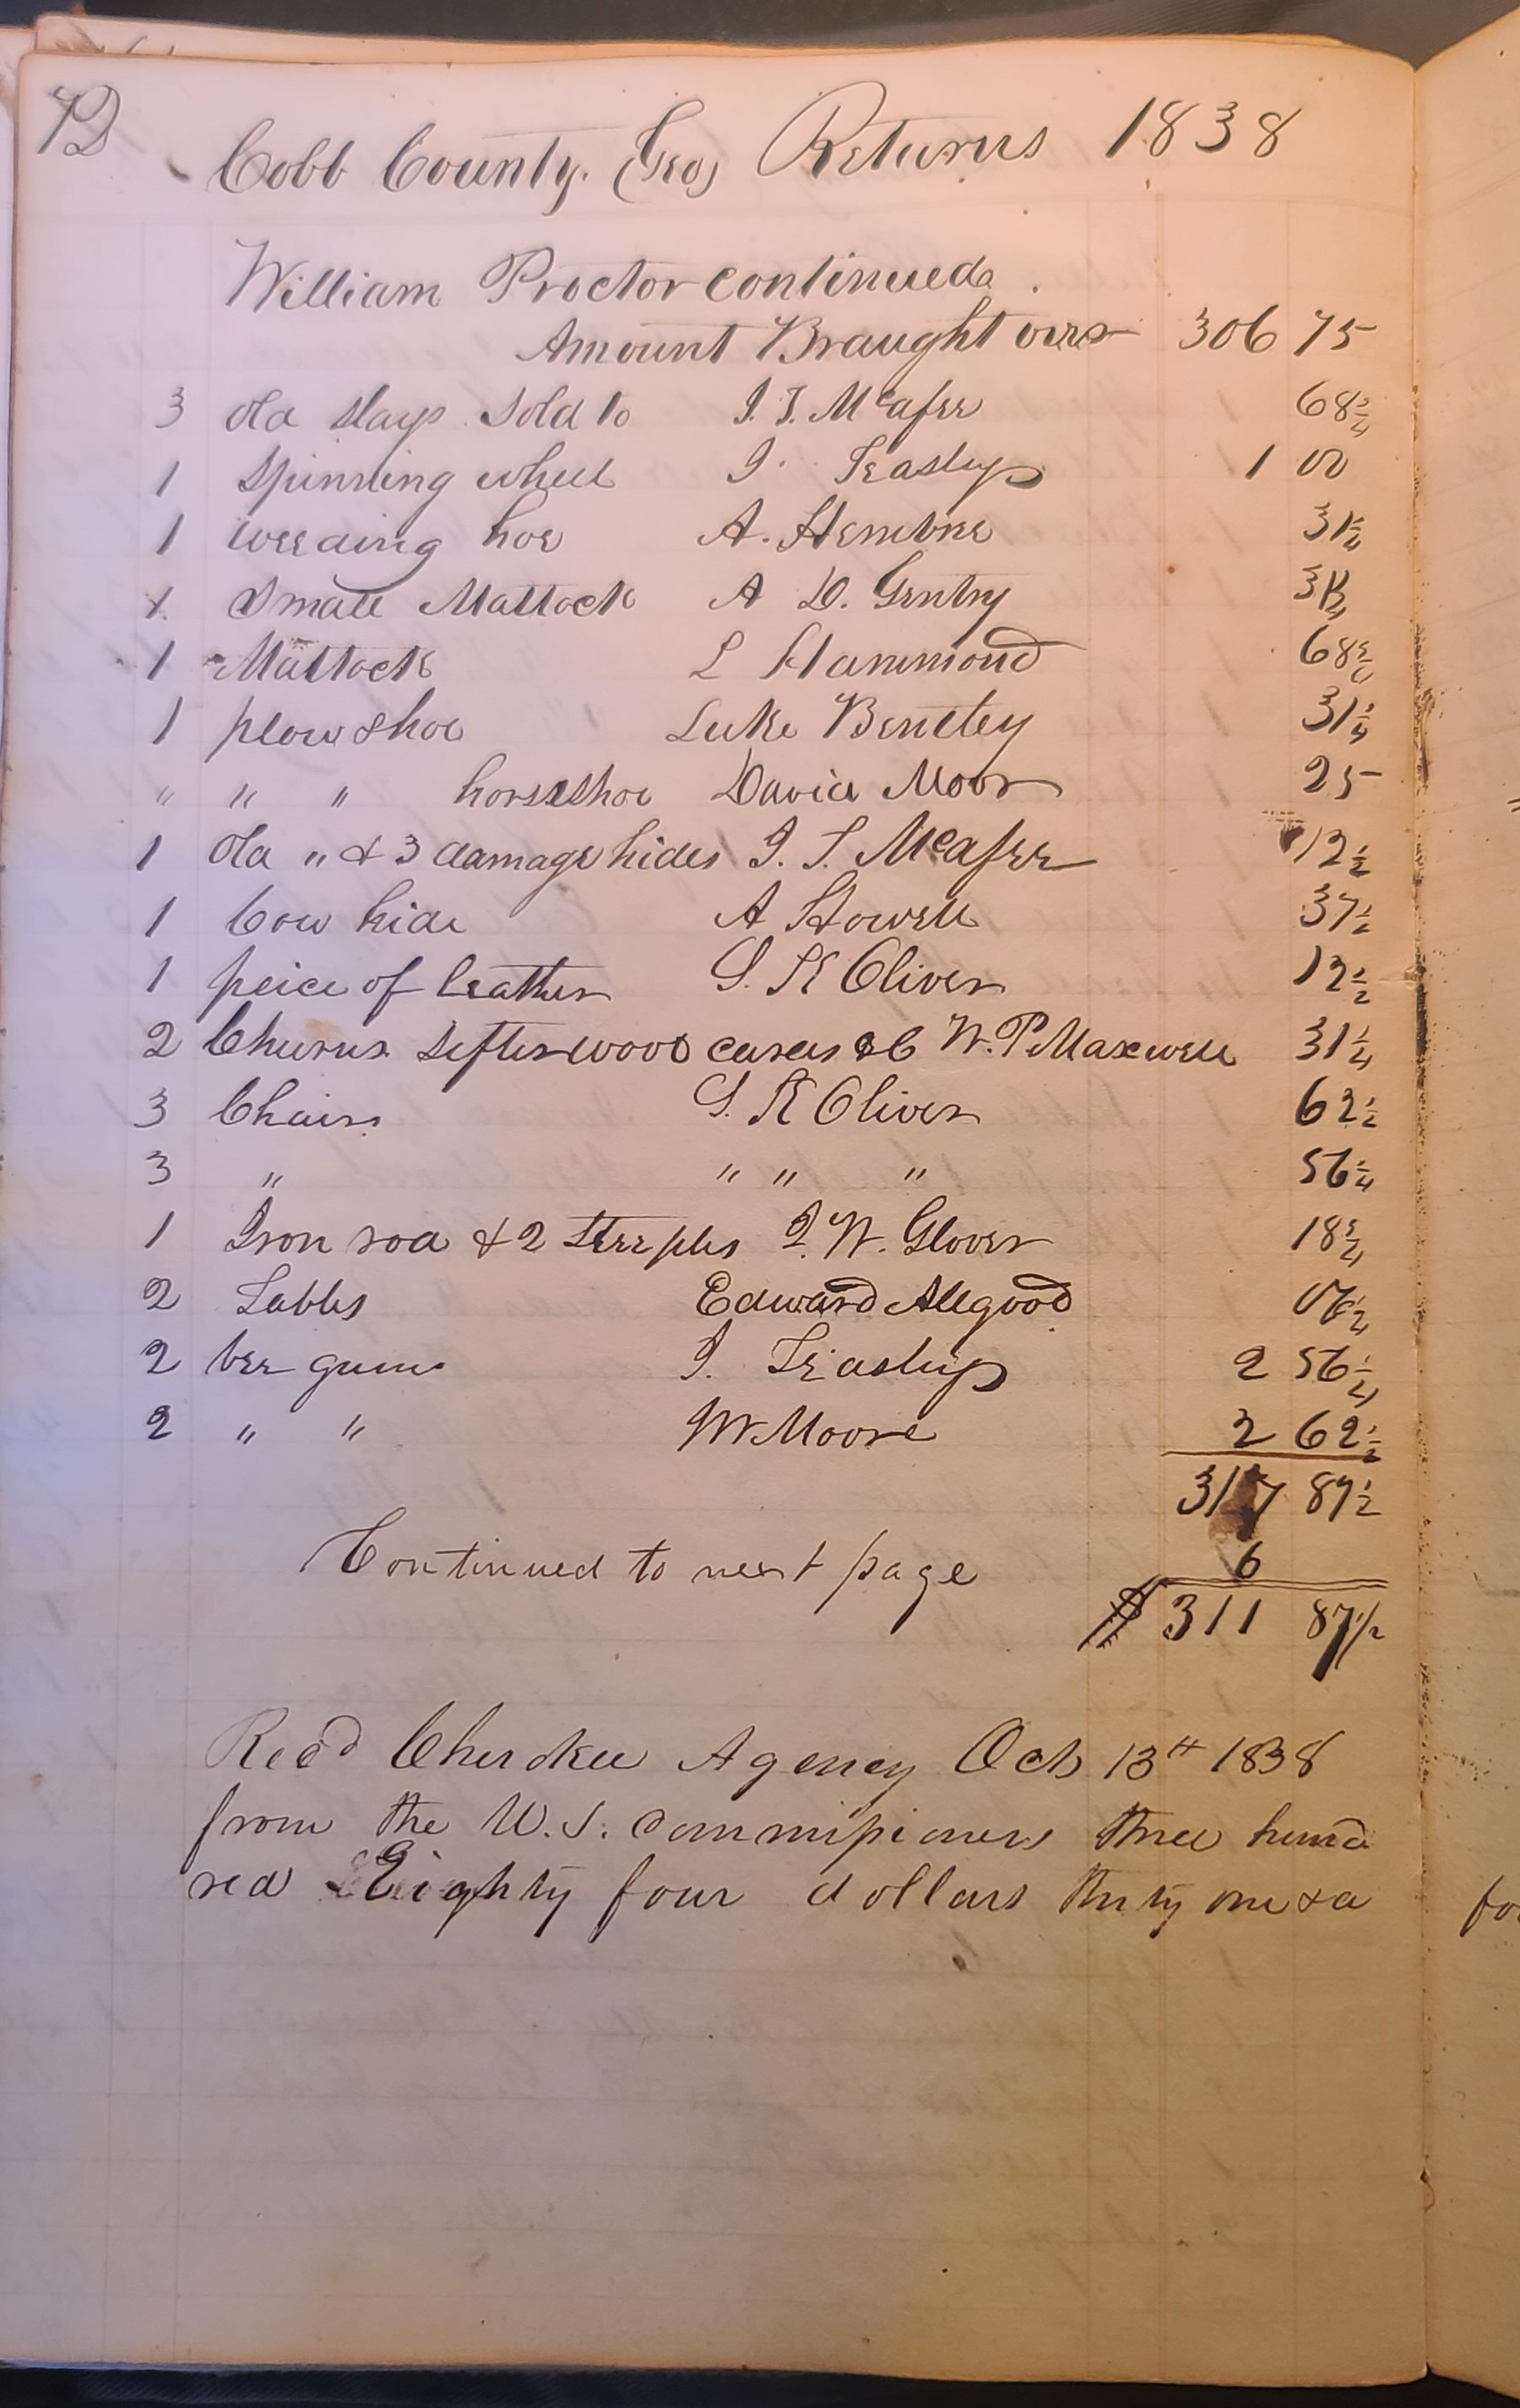 72
Cobb County. (Geo) Returns 1838
William Proctor continued.
Amount Braught over 306 75
3 old slays Sold to J. T. McAfee 68 3/4
1 Spinning wheel J. Teasley 1 00
1 weeding hoe A. Hembree 31 1/4
1 Small Mattock A D. Gentry 31 1/4
1 Mattock L Hammond 68 3/4
1 plow & hoe Luke Bentley 31 1/4
" " " horseshoe David Moor 25
1 old " & 3 damage hides J. T. McAfee 12 1/2
1 Cow hide A Howell 37 1/2
1 peice of leather S. K Oliver 12 1/2
2 Churns sifter wood &c W. P. Maxwell 31 1/4
3 Chairs S. K Oliver 62 1/2
3 " " " " 56 1/4
1 Iron rod & 2 steeples J. W. Glover 18 3/4
2 Tables Edward Alegood 06 1/4
2 bee gums J. Teasley 2 56 1/4
2 " " W Moore 2 62 1/2
317 87 1/2
6
Continued to next page
$ 311 87 1/2
Recd Cherokee Agency Oct 13th 1838
from the U. S. Commissioners three hund
red Eighty four dollars thirty one & a
fo